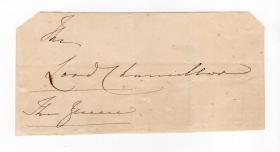 The
Lord Chancellor
The Queen